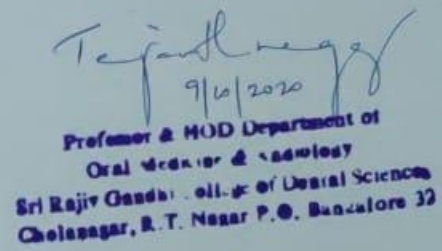 9/10/2020
Professor & HOD Department of
Oral Medicine & Radiology
Sri Rajiv Gandhi College of Dental Sciences
Cholanagar, R.T. Nagar P.O. Bangalore 32